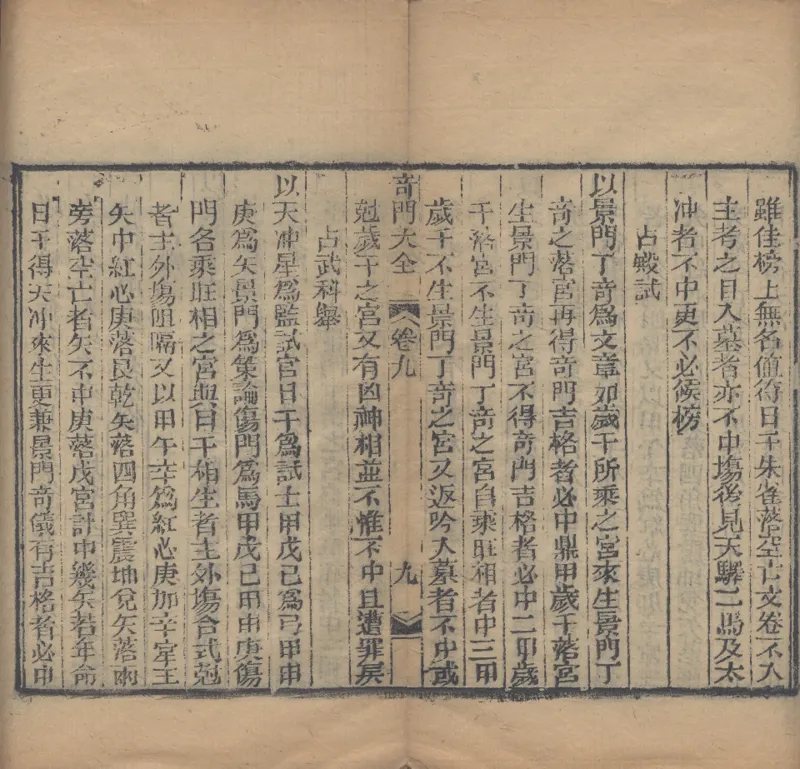 雖佳榜上無名值符日干朱雀落空亡文卷不入
主考之目入墓者亦不中塲後見天驛二馬及太
冲者不中更不必候榜
占殿試
以景門丁奇爲文章如歲干所乘之宮來生景門丁
奇之落宮再得奇門吉格者必中鼎甲歲干落宮
生景門丁奇之宮不得奇門吉格者必中二甲歲
干落宮不生景門丁奇之宮自乘旺相者中三甲
歲干不生景門丁奇之宮又返吟入墓者不中或
尅歲干之宮又有凶神相並不惟不中且遭罪戾
奇門大全 卷九 九
占武科舉
以天冲星爲監試官日干爲試士甲戊己爲弓甲申
庚爲矢景門爲策論傷門爲馬甲戊己甲申庚傷
門各乘旺相之宮與日干相生者主外塲合式尅
者主外塲阻隔又以甲午辛爲紅心庚加辛宮主
矢中紅心庚落艮乾矢落四角巽震坤兌矢落兩
旁落空亡者矢不中庚落戊宮計中幾矢若年命
日干得天冲來生更兼景門奇儀有吉格者必中